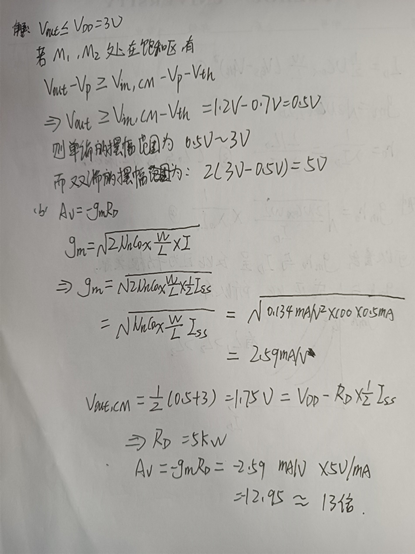 解: Vout ≤ VDD = 3V
若 M1, M2 处在饱和区, 有
Vout - Vp ≥ Vin,CM - Vp - Vth
⇒ Vout ≥ Vin,CM - Vth = 1.2V - 0.7V = 0.5V
则单端的摆幅范围为 0.5V ~ 3V
而双端的摆幅范围为: 2(3V - 0.5V) = 5V
Av = -gmRD
gm = √(2μnCox W/L × I)
⇒ gm = √(2μnCox W/L × ½ ISS)
= √(μnCox W/L ISS) = √(0.134mA/V² × 100 × 0.5mA)
= 2.59mA/V
Vout,CM = ½ (0.5+3) = 1.75V = VDD - RD × ½ ISS
⇒ RD = 5kω
Av = -gmRD = -2.59 mA/V × 5V/mA
= 12.95 ≈ 13倍.